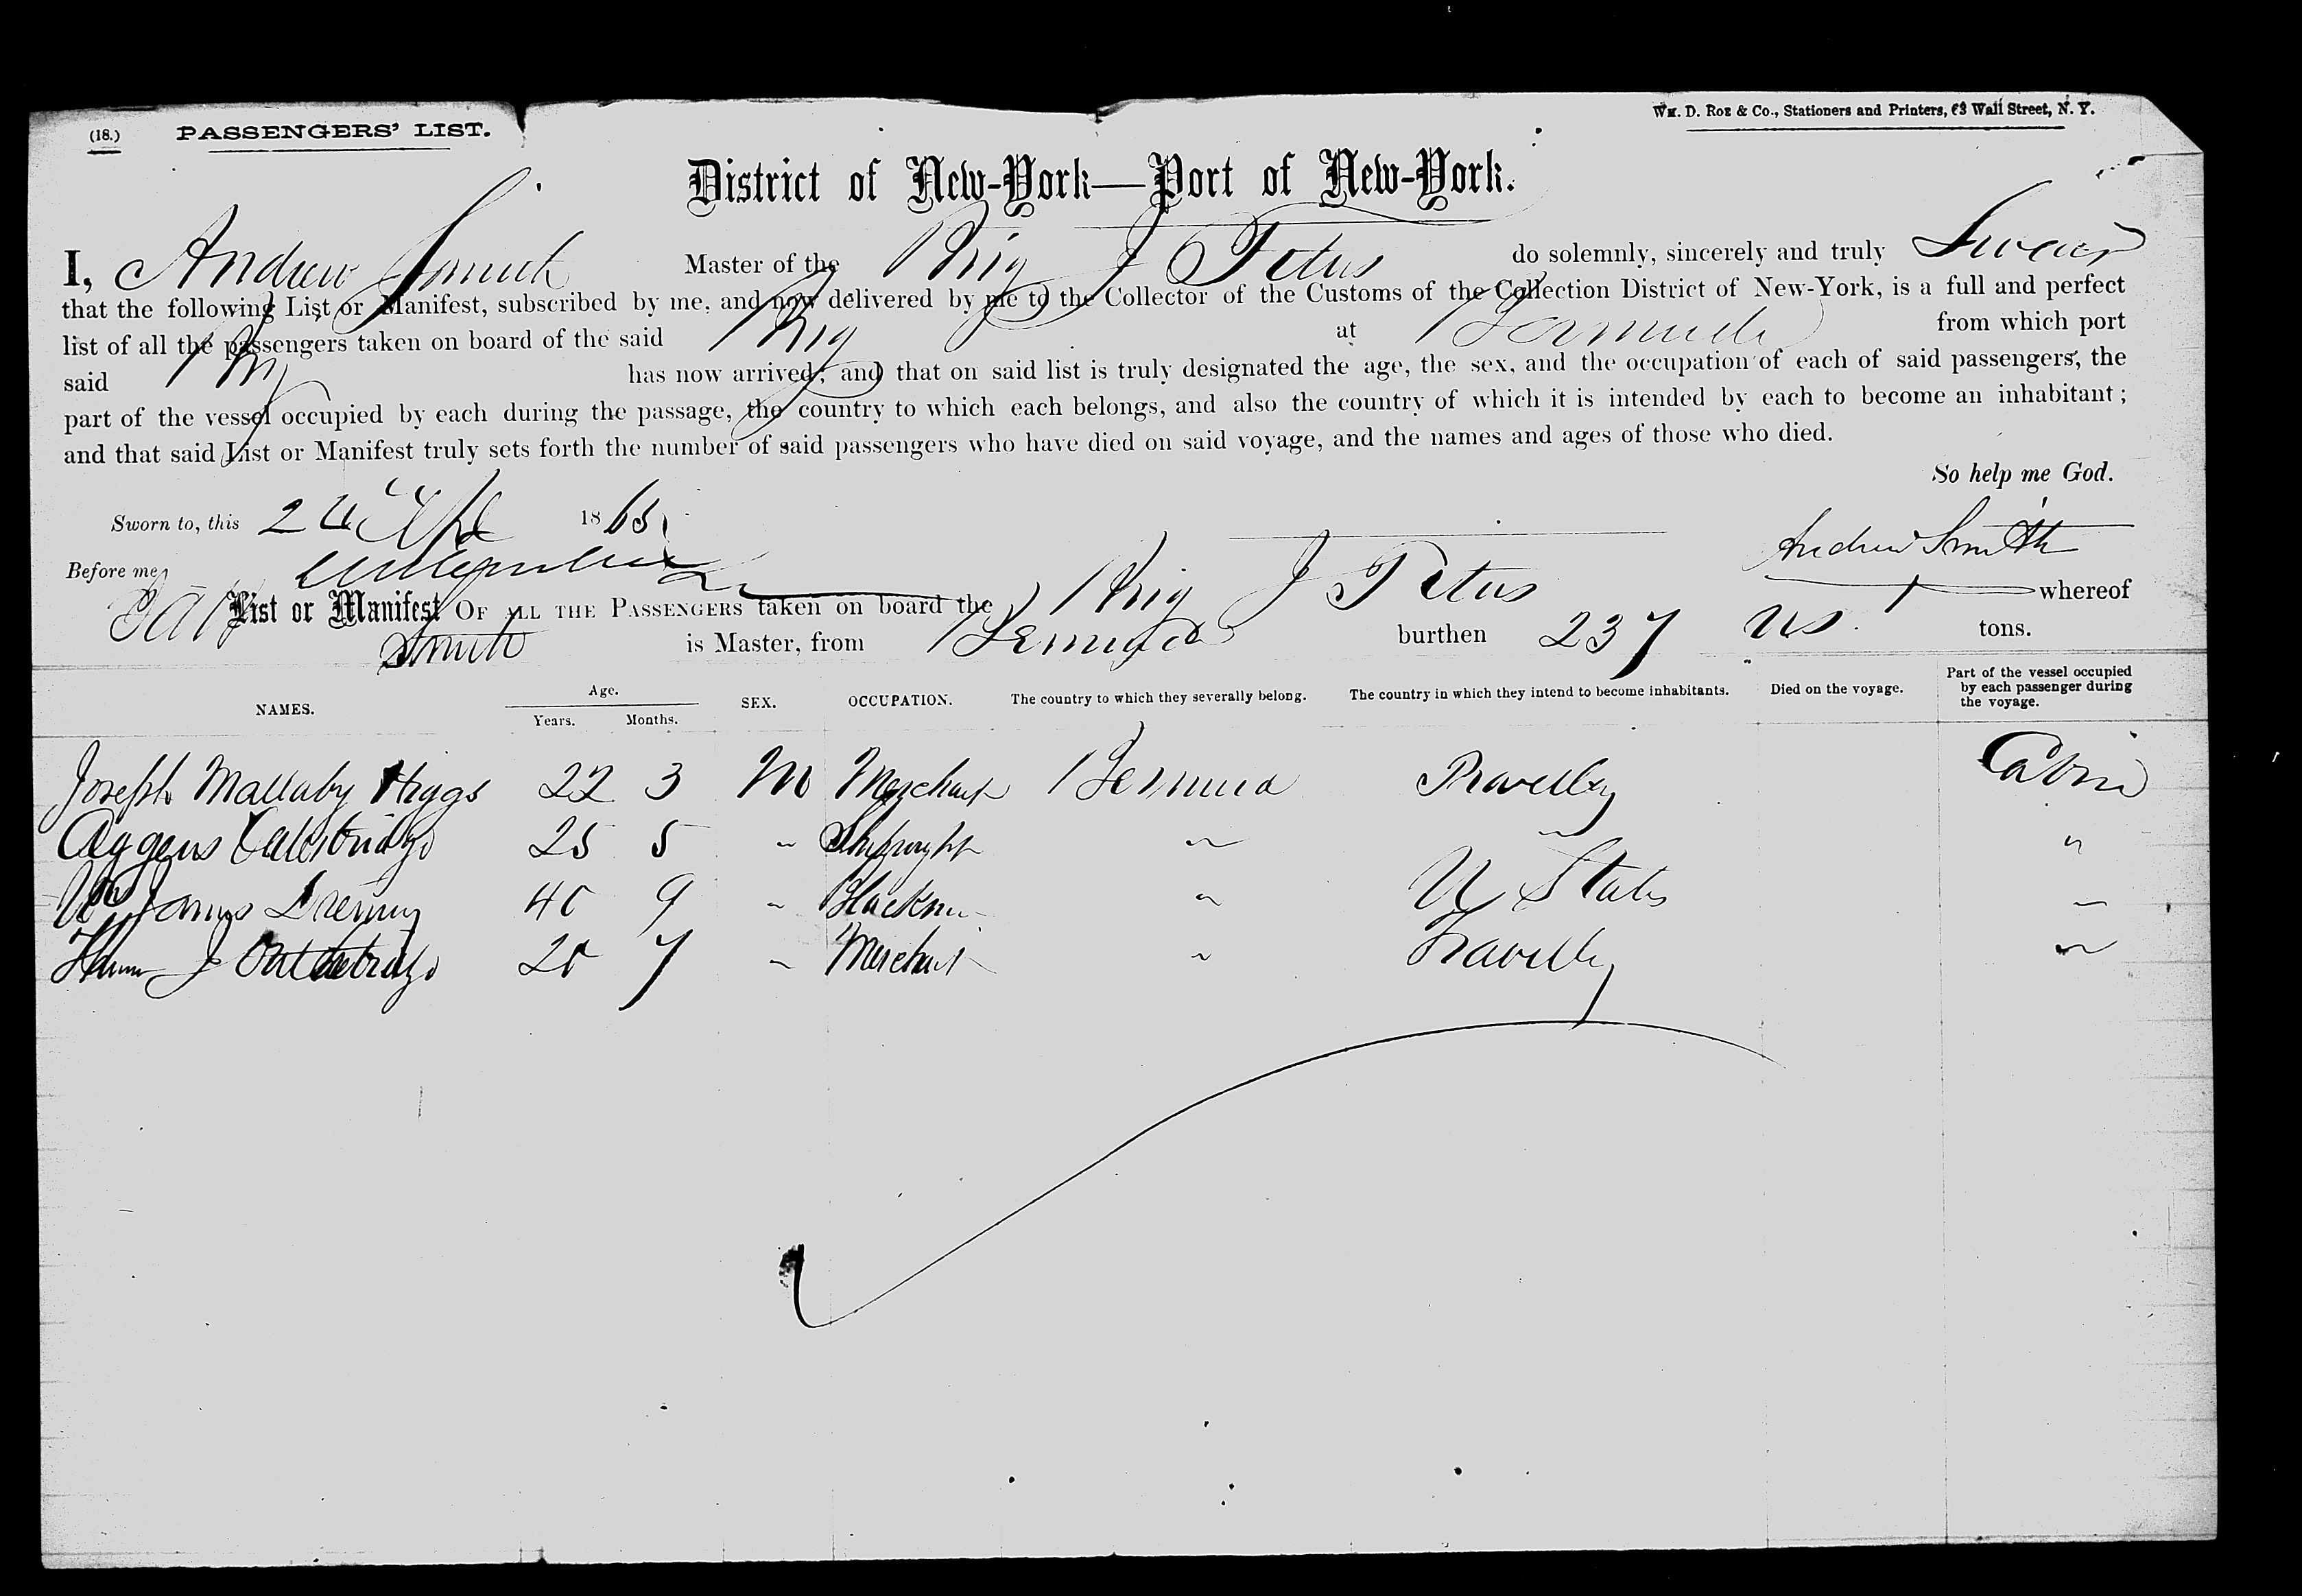 (18.) PASSENGERS' LIST.
WM. D. ROE & CO., Stationers and Printers, 63 Wall Street, N. Y.
District of New-York—Port of New-York.
I, Andrew Smith Master of the Brig J Titus do solemnly, sincerely and truly Swear
that the following List or Manifest, subscribed by me, and now delivered by me to the Collector of the Customs of the Collection District of New-York, is a full and perfect
list of all the passengers taken on board of the said Brig at Bermuda from which port
said Brig has now arrived; and that on said list is truly designated the age, the sex, and the occupation of each of said passengers, the
part of the vessel occupied by each during the passage, the country to which each belongs, and also the country of which it is intended by each to become an inhabitant;
and that said List or Manifest truly sets forth the number of said passengers who have died on said voyage, and the names and ages of those who died.
So help me God.
Sworn to, this 24 1865
Andrew Smith
Before me,
List or Manifest OF ALL THE PASSENGERS taken on board the Brig J Titus whereof
Smith is Master, from Bermuda burthen 237 tons.
NAMES. Age. Years. Months. SEX. OCCUPATION. The country to which they severally belong. The country in which they intend to become inhabitants. Died on the voyage. Part of the vessel occupied by each passenger during the voyage.
Joseph Mallaby Higgs 22 3 M Merchant Bermuda Travelling Cabin
25 5 " Shipwright " " "
James 40 9 " " U States "
J 20 7 " Merchant " Travelling "